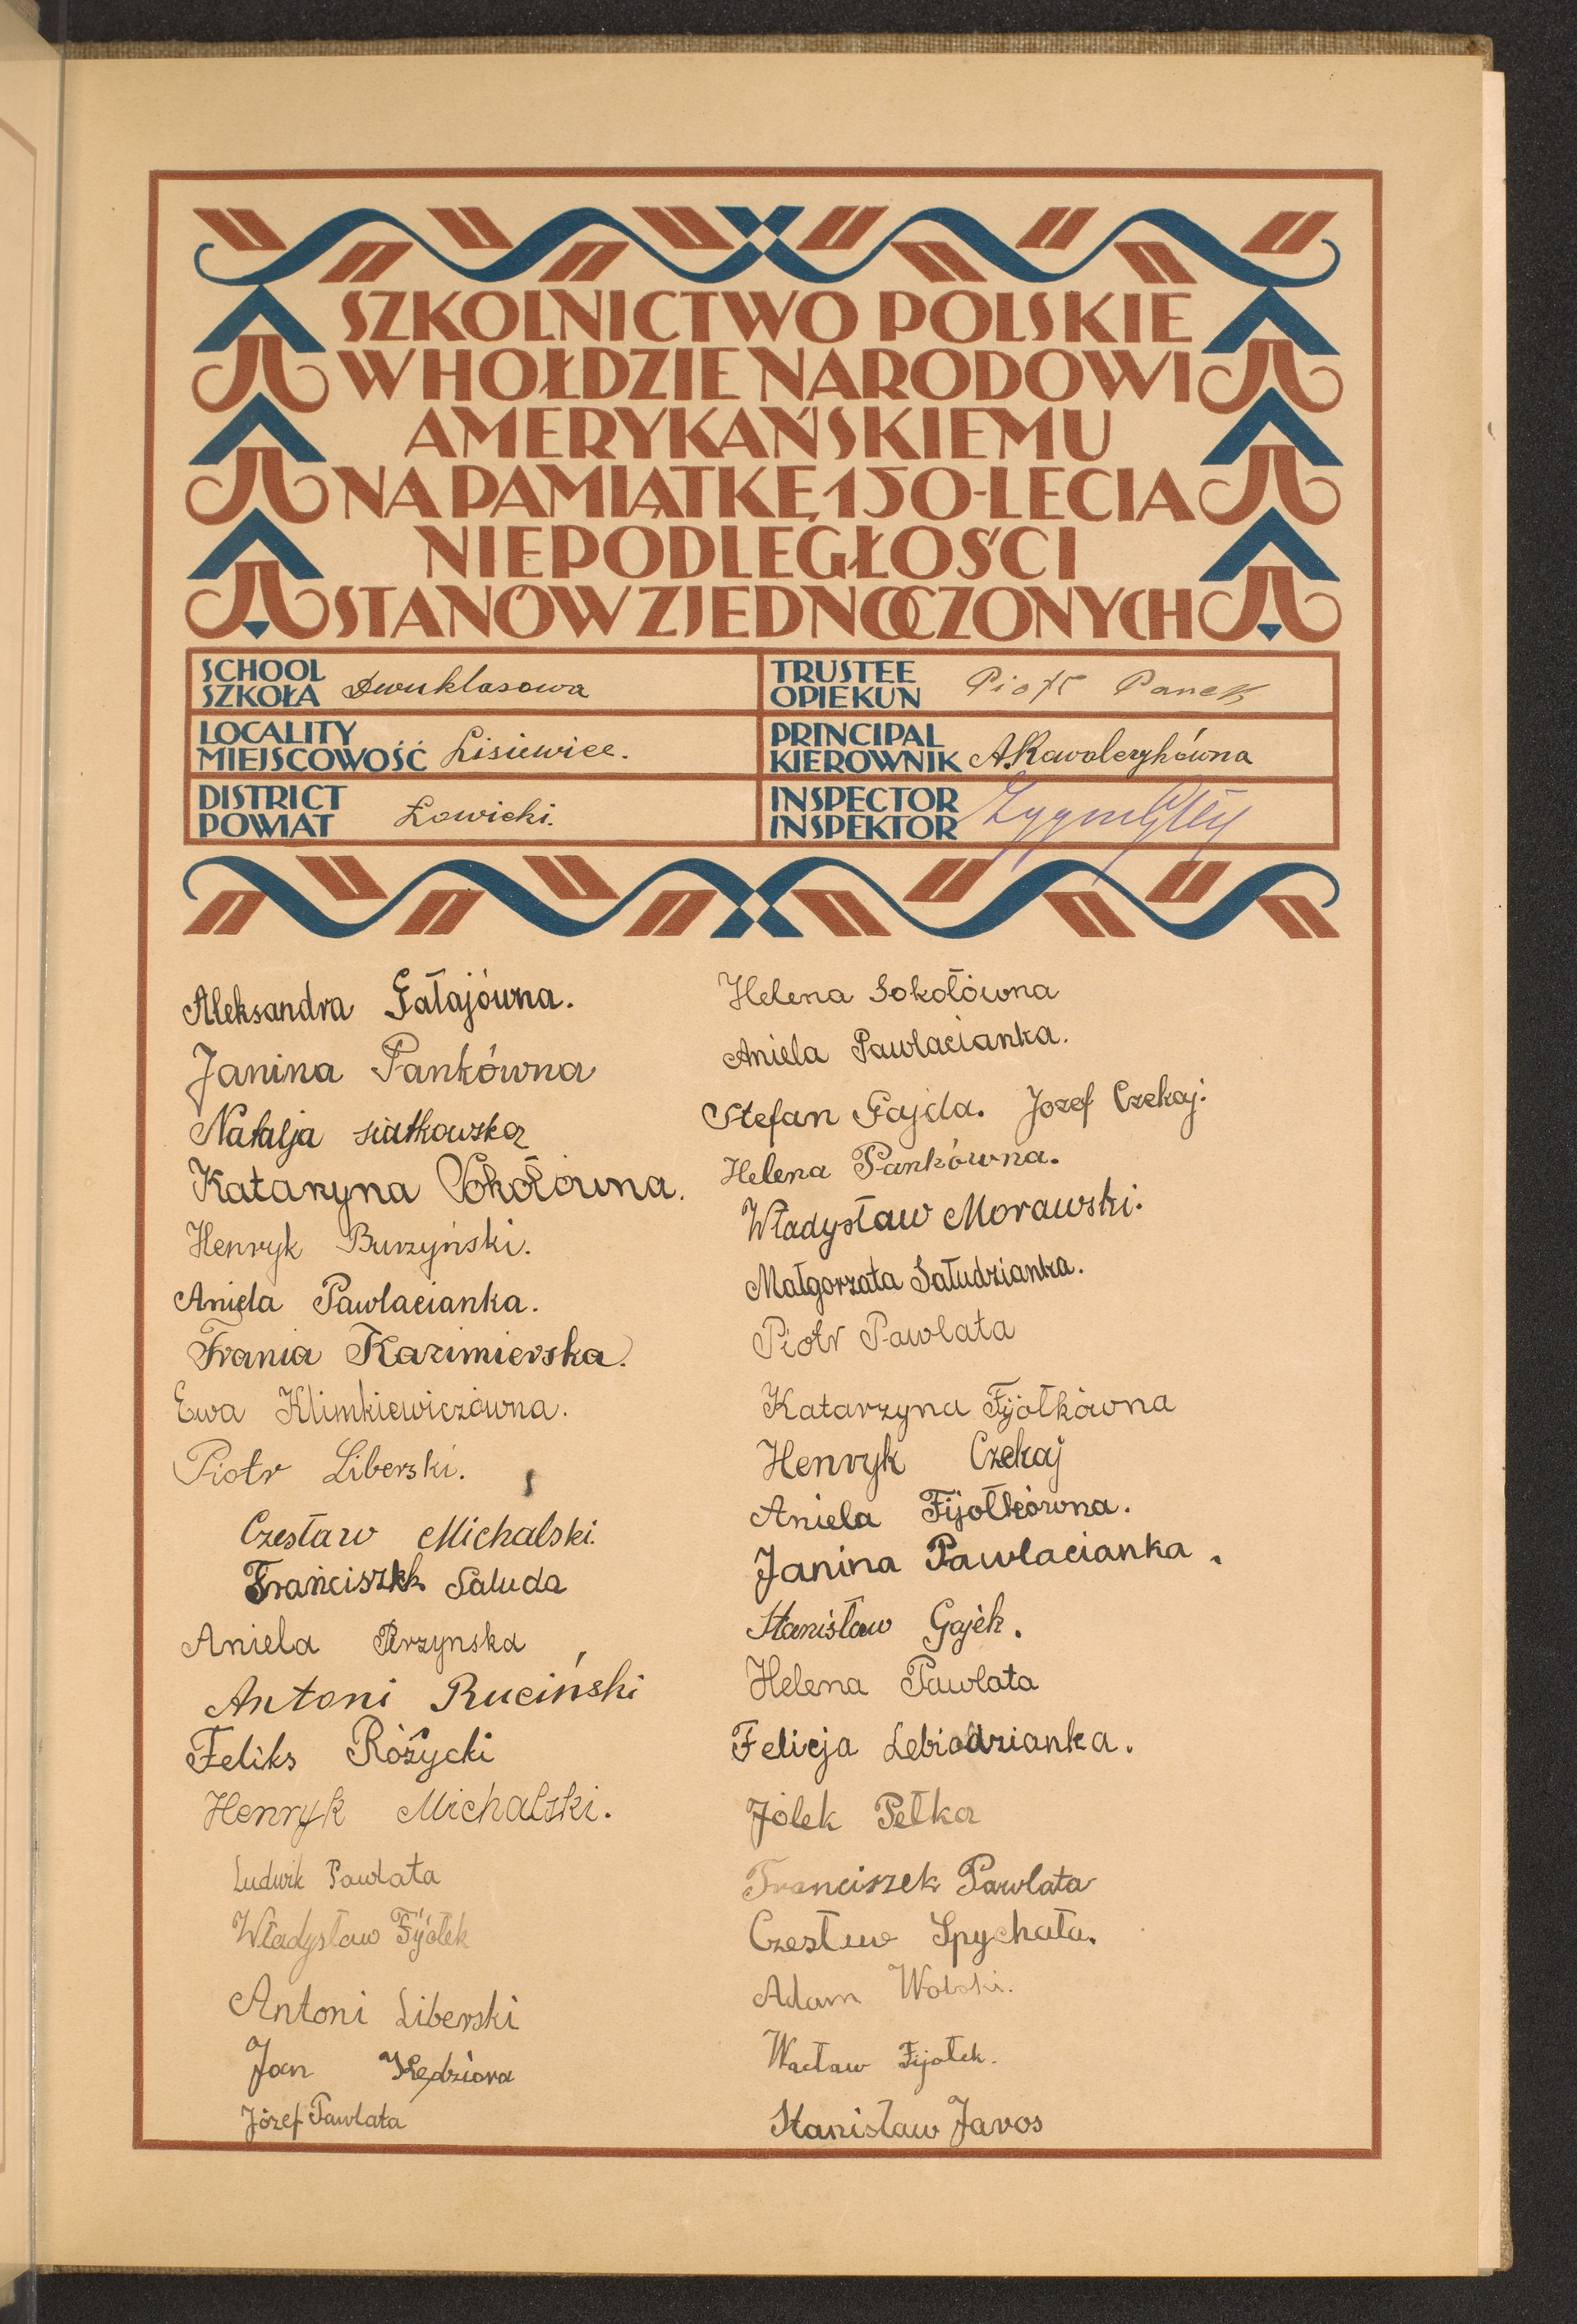 SZKOLNICTWO POLSKIE
W HOŁDZIE NARODOWI
AMERYKAŃSKIEMU
NA PAMIĄTKĘ 150-LECIA
NIEPODLEGŁOŚCI
STANÓW ZJEDNOCZONYCH
SCHOOL
SZKOŁA Dwuklasowa
TRUSTEE
OPIEKUN Piotr Panek
LOCALITY
MIEJSCOWOŚĆ Lisiewice.
PRINCIPAL
KIEROWNIK A. Kawalerykówna
DISTRICT
POWIAT Łowicki.
INSPECTOR
INSPEKTOR
Aleksandra Gałajówna.
Janina Pankówna
Natalja siatkowska
Katarzyna Sokołówna.
Henryk Burzyński.
Aniela Pawlacianka.
Frania Kazimierska.
Ewa Klimkiewiczówna.
Piotr Liberski.
Czesław Michalski.
Franciszek Saluda
Aniela Perzynska
Antoni Ruciński
Feliks Różycki
Henryk Michalski.
Ludwik Pawlata
Władysław Fijołek
Antoni Liberski
Jan Kędziora
Józef Pawlata
Helena Sokołówna
Aniela Pawlacianka.
Stefan Gajda. Jozef Czekaj.
Helena Pankówna.
Władysław Morawski.
Małgorzata Sałudzianka.
Piotr Pawlata
Katarzyna Fijołkówna
Henryk Czekaj
Aniela Fijołkówna.
Janina Pawlacianka.
Stanisław Gajek.
Helena Pawlata
Felicja Lebiodzianka.
Jólek Pełka
Franciszek Pawlata
Czesław Spychała.
Adam Wolski.
Wacław Fijołek.
Stanisław Jaros